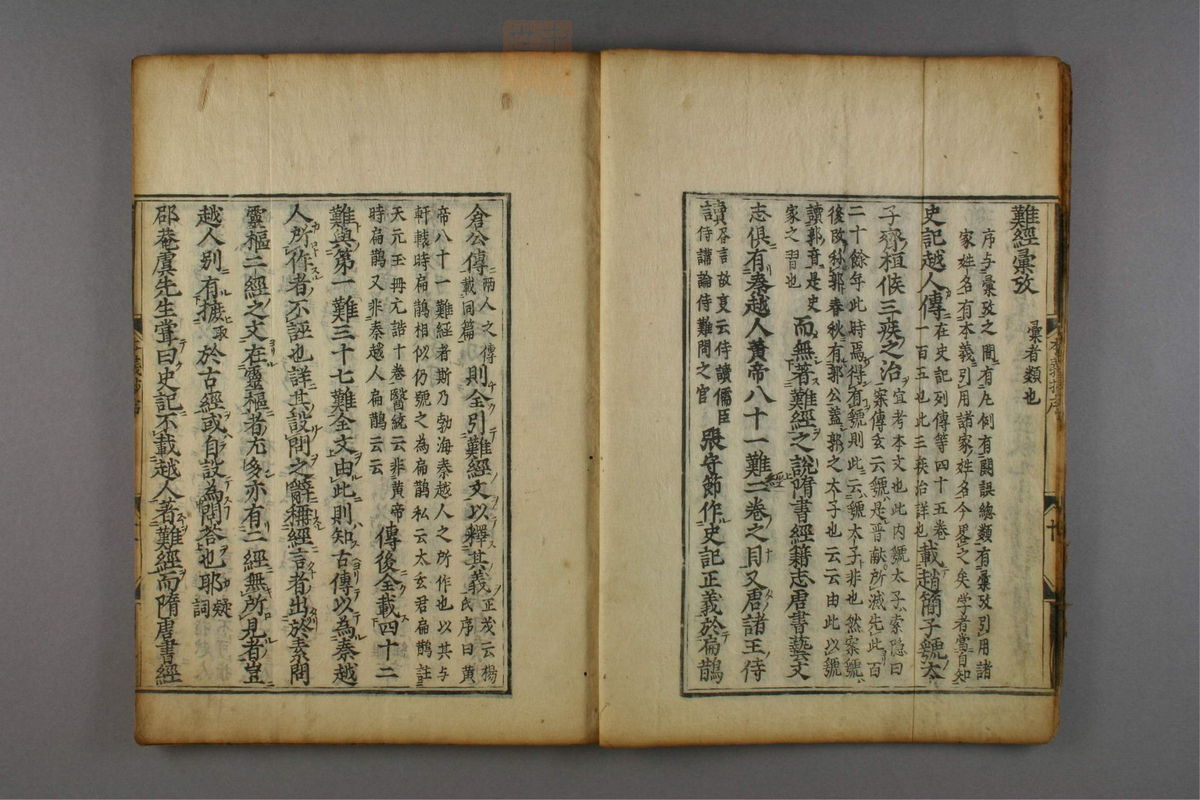 難經彙攷 彙者類也
序与彙攷之間有凡例有闕誤總類有彙攷引用諸
家姓名有本義引用諸家姓名今畧之矣学者當自知
史記越人傳 在史記列傳等四十五卷
一百五也此三疾治詳也 載趙簡子虢太
子齊桓侯三疾之治 宜考本文也此内虢太子索隐曰
案傳玄云虢是晋献所滅先此百
二十餘年此時焉得有虢則此云虢太子非也然案虢
後改稱郭春秋有郭公蓋郭之太子也云云由此以虢
讀郭音是史
家之習也 而無著難經之說隋書經籍志唐書藝文
志俱有秦越人黄帝八十一難經二卷之目又唐諸王侍
讀 唐言故叓云侍讀儒臣
侍講論侍難問之官 張守節作史記正義於扁鵲
倉公傳 兩人之傳
載同篇 則全引難經文以釋其義 正茂云楊
氏序曰黄
帝八十一難經者斯乃勃海秦越人之所作也以其与
軒轅時扁鵲相似仍號之為扁鵲私云太玄君扁鵲註
天元玉冊亢諳十巻醫統云非黄帝
時扁鵲又非秦越人扁鵲云云 傳後全載四十二
難與第一難三十七難全文由此則知古傳以為秦越
人所作者不誣也詳其設問之辭稱經言者出於素問
靈樞二經之文在靈樞者尤多亦有二經無所見者豈
越人别有摭 於古經或自設為問荅也耶 疑
詞
邵菴虞先生甞曰史記不載越人著難經而隋唐書經